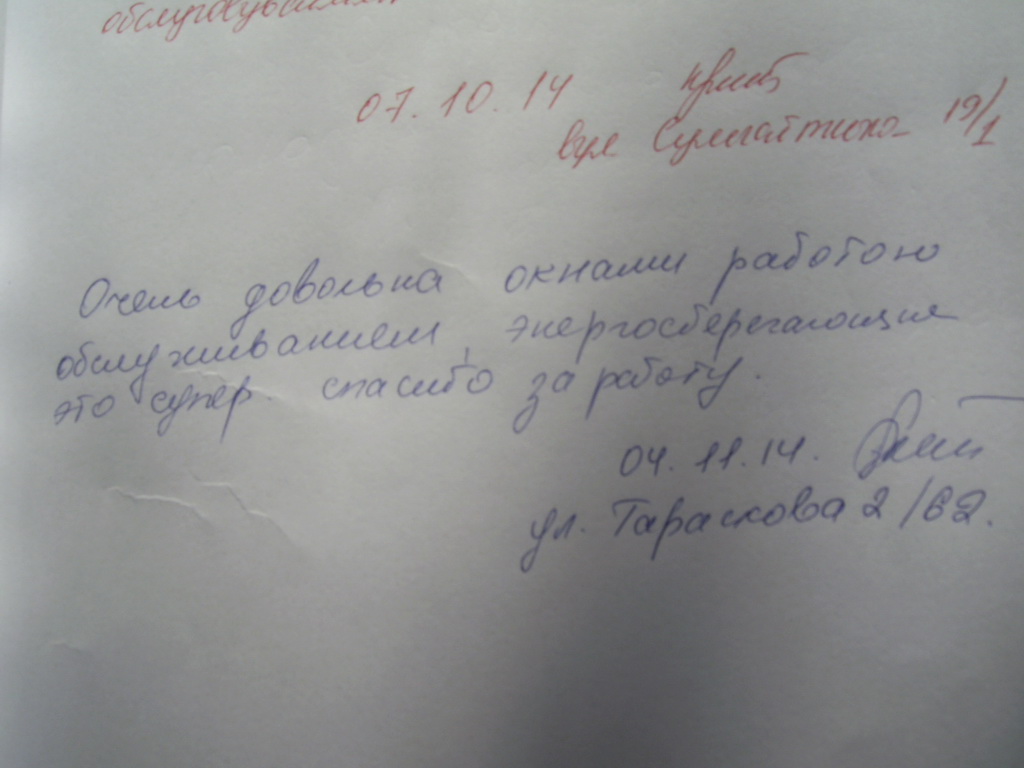 обслуговуванням
07.10.14
вул Сумгаїтська 19/1
Очень довольна окнами работою
обслуживанием, энергосберегающие
это супер. спасибо за работу.
04.11.14.
ул. Тараскова 2/62.